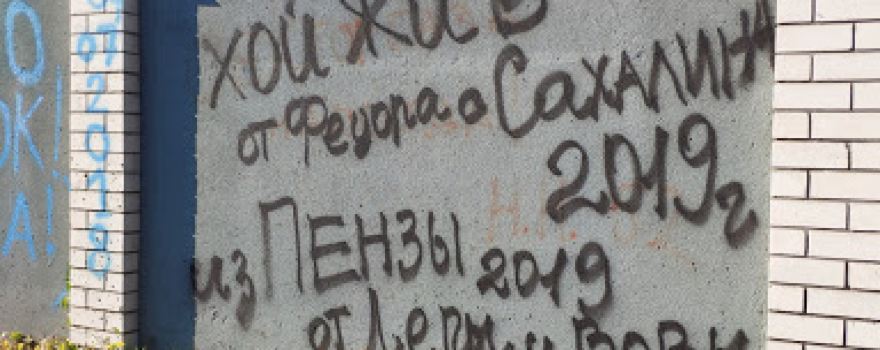 ХОЙ ЖИВ
от Федора о. Сахалин
2019 г
из ПЕНЗЫ 2019
от Вовы
О
ОК!
А!